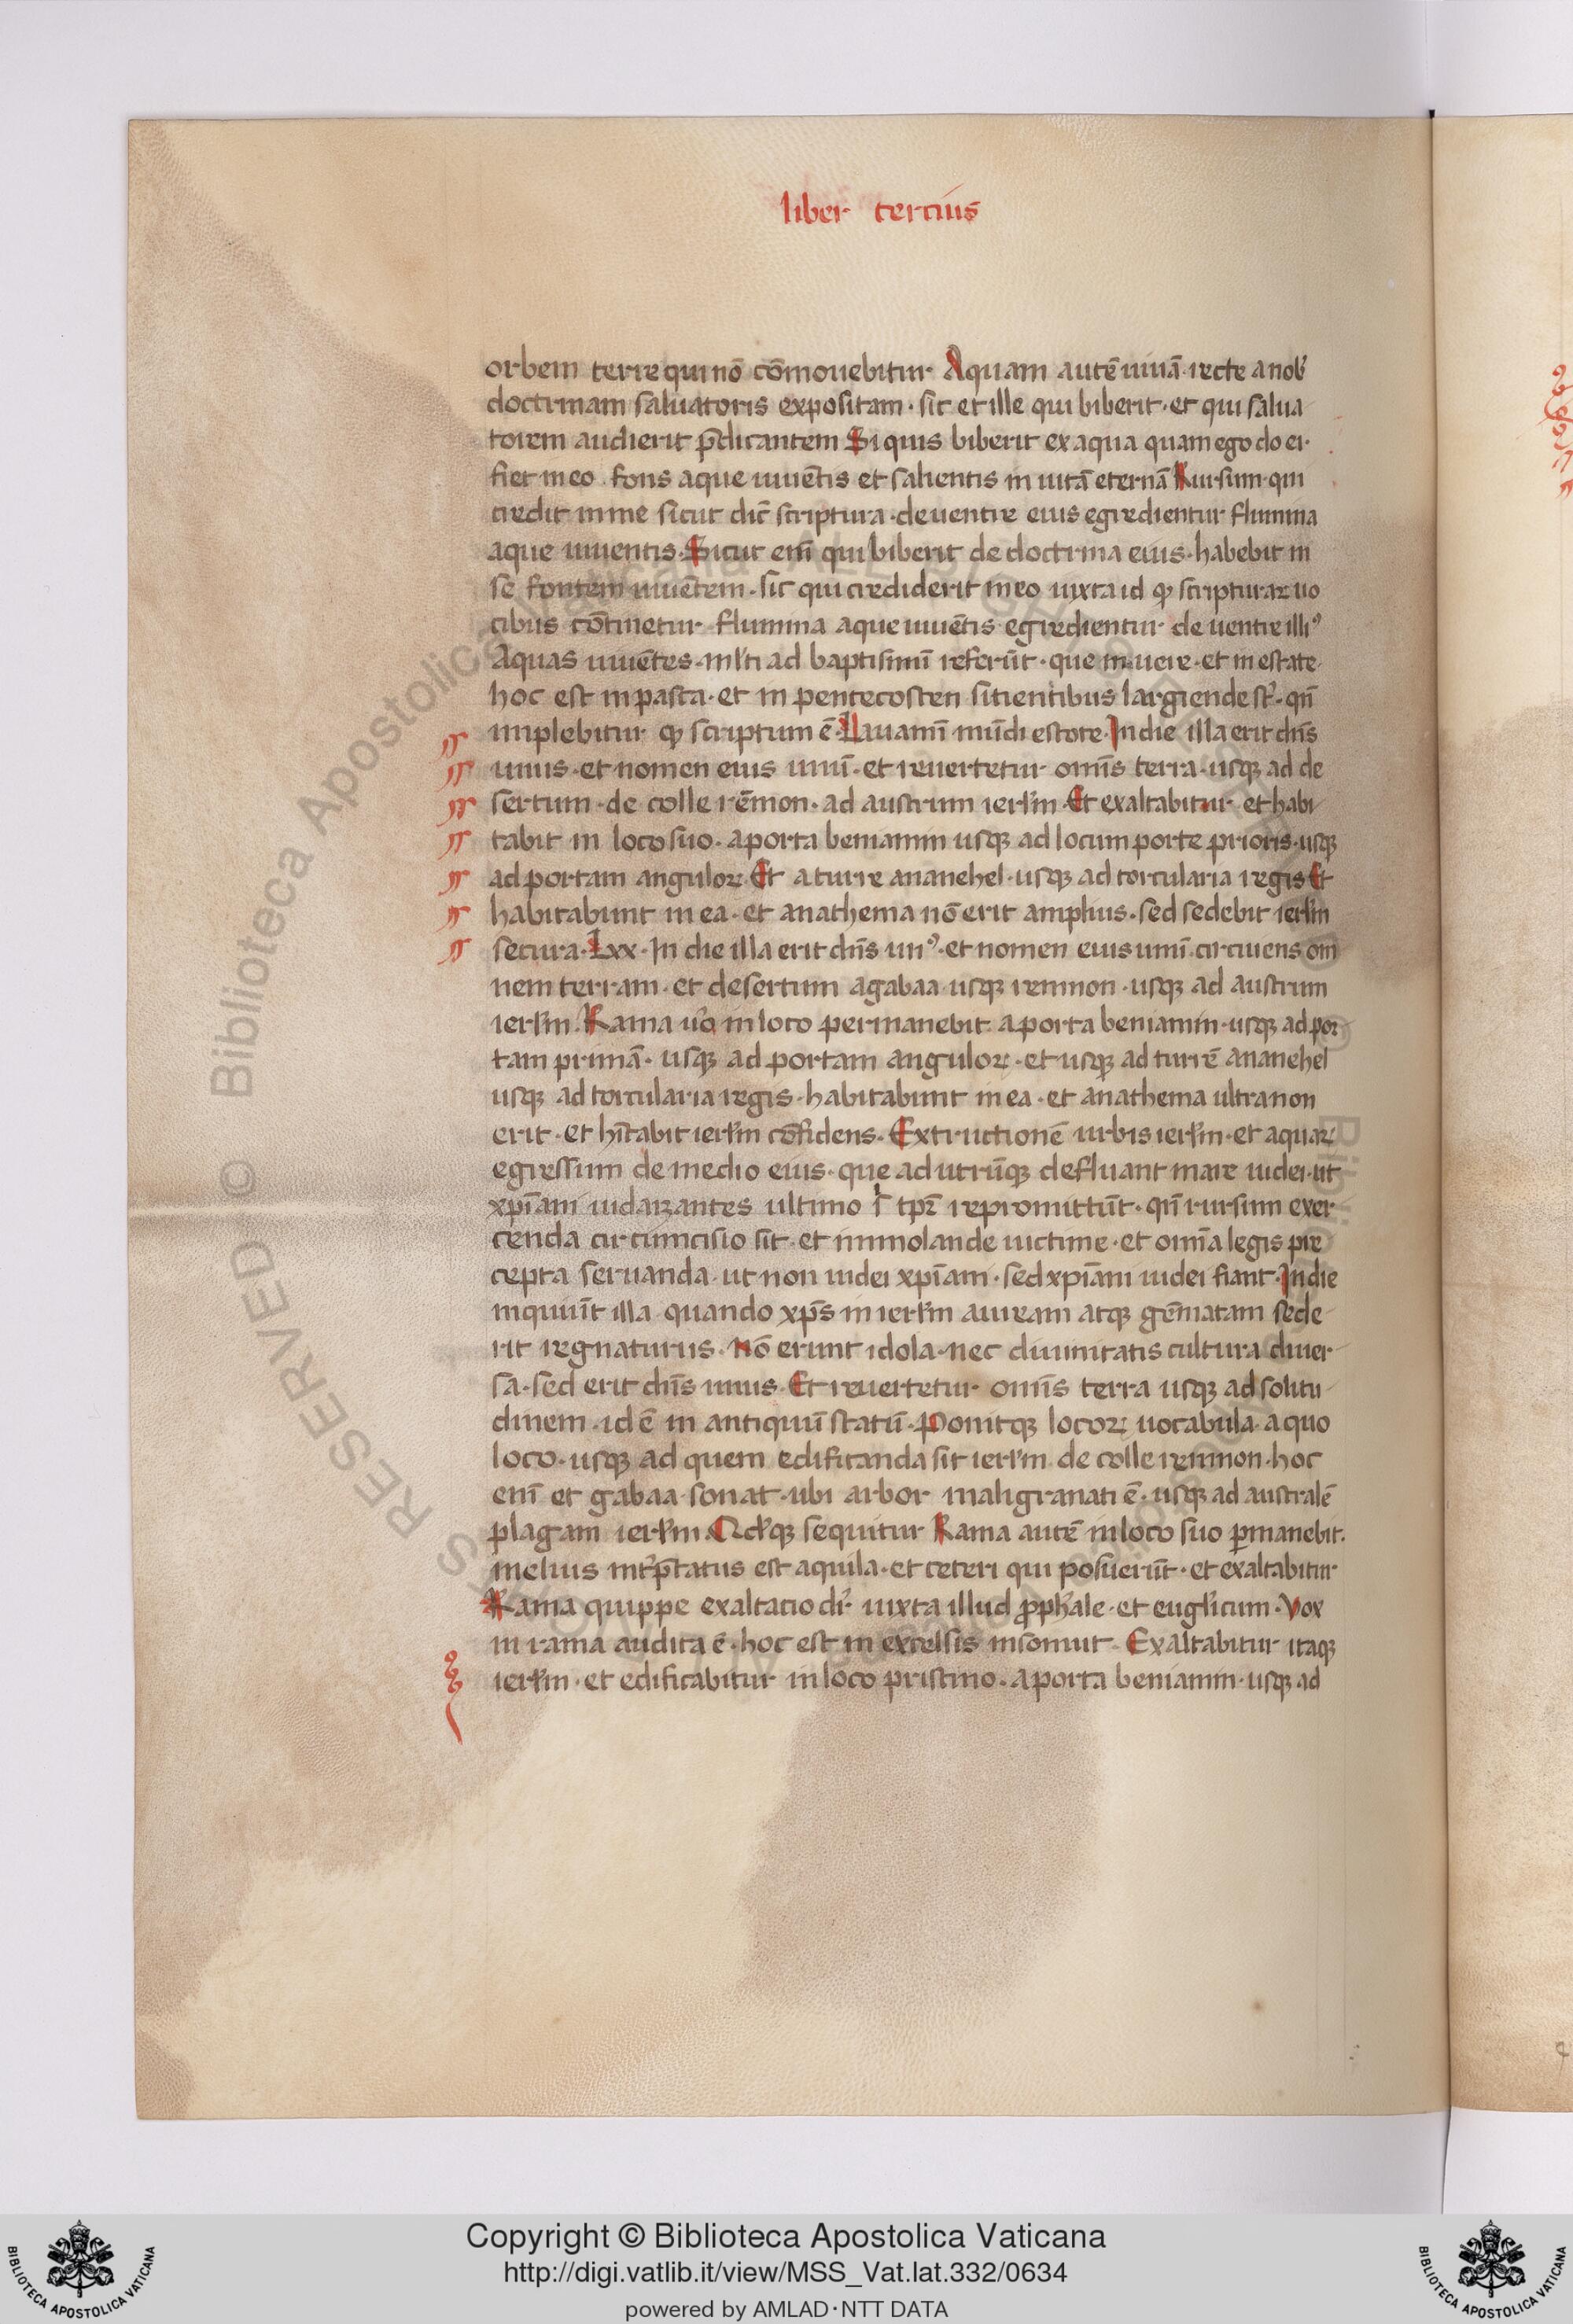 liber tercius
orbem terre qui nō cōmouebitur. Aquam autē uiuā recte a nob'
doctrinam saluatoris expositam. sic et ille qui biberit. et qui salua
torem audierit p̄dicantem Si quis biberit ex aqua quam ego do ei.
fiet in eo fons aque uiuētis et salientis in uitā eternā Rursum qui
credit in me sicut dic̄ scriptura. de uentre eius egredientur flumina
aque uiuentis. Sicut enī qui biberit de doctrina eius. habebit in
se fontem uiuētem. sic qui crediderit in eo iuxta id qd scripturaꝝ uo
cibus cōtinetur flumina aque uiuētis egredientur de uentre illiꝰ
Aquas uiuētes. ml'ti ad baptismū referūt. que in uere. et in estate.
hoc est in pasca. et in pentecosten sitientibus largiende st'. qn̄
implebitur qd scriptum ē. Lauamī mūdi estote. In die illa erit dn̄s
unus. et nomen eius unū. et reuertetur omīs terra. usqꝫ ad de
sertum. de colle rēmon. ad austrum ierl'm Et exaltabitur et habi
tabit in loco suo. a porta beniamin usqꝫ ad locum porte prioris. usqꝫ
ad portam anguloꝝ. Et a turre ananehel. usqꝫ ad torcularia regis Et
habitabunt in ea. et anathema nō erit amplius. sed sedebit ierl'm
secura. Lxx. In die illa erit dn̄s unꝰ. et nomen eius unū. circuiens om
nem terram. et desertum a gabaa usqꝫ remmon. usqꝫ ad austrum
ierl'm. Rama u'o in loco permanebit a porta beniamin. usqꝫ ad por
tam primā. usqꝫ ad portam anguloꝝ. et usqꝫ ad turrē ananehel
usqꝫ ad torcularia regis. habitabunt in ea. et anathema ultra non
erit. et hītabit ierl'm cōfidens. Extructionē urbis ierl'm. et aquaꝝ
egressum de medio eius. que ad utrūqꝫ defluant mare iudei. ut
xpīani iudaizantes ultimo tp̄r repromittūt. qn̄ rursum exer
cenda circumcisio sit. et immolande uictime. et omīa legis pre
cepta seruanda. ut non iudei xpīani. sed xpīani iudei fiant. In die
inquiūt illa quando xp̄s in ierl'm auream atqꝫ gēmatam sede
rit regnaturus. nō erunt idola. nec diuinitatis cultura diuer
sa. sed erit dn̄s unus. Et reuertetur omīs terra usqꝫ ad solitu
dinem. id ē in antiquū statū. Ponitqꝫ locoꝝ uocabula. a quo
loco. usqꝫ ad quem edificanda sit ierl'm. de colle remmon. hoc
enī et gabaa sonat. ubi arbor maligranati ē. usqꝫ ad australē
plagam ierl'm. Qd'qꝫ sequitur Rama autē in loco suo p̱manebit.
melius int'p̄tatus est aquila. et ceteri qui posuerūt. et exaltabitur
Rama quippe exaltatio dr'. iuxta illud p̱ph'ale. et eugl'icum. Vox
in rama audita ē. hoc est in excelsis insonuit. Exaltabitur itaqꝫ
ierl'm. et edificabitur in loco pristino. a porta beniamin. usqꝫ ad
© Biblioteca Apostolica Vaticana
RESERVED
Copyright © Biblioteca Apostolica Vaticana
http://digi.vatlib.it/view/MSS_Vat.lat.332/0634
powered by AMLAD·NTT DATA
BIBLIOTECA APOSTOLICA VATICANA
BIBLIOTECA APOSTOLICA VATICANA